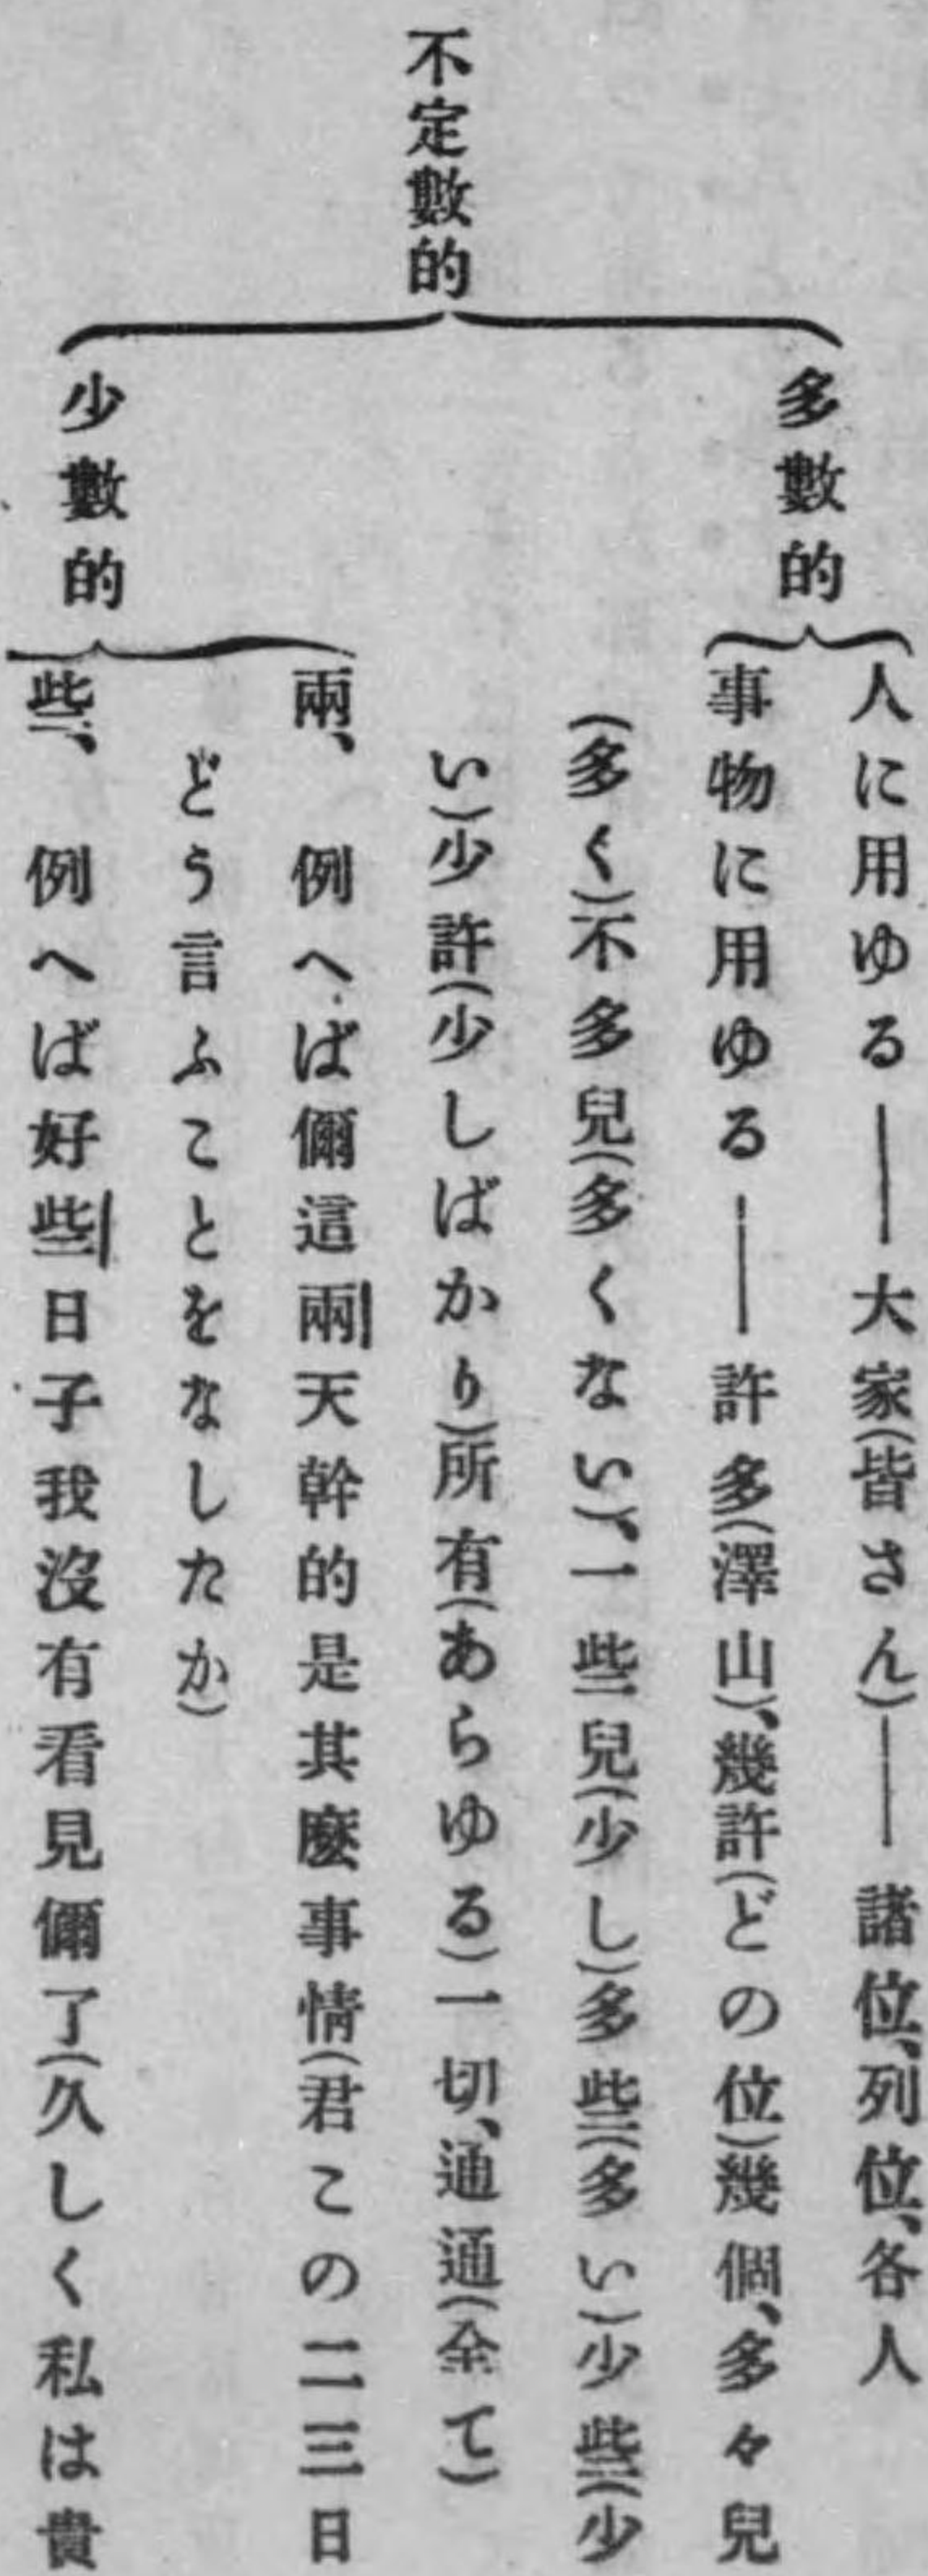 不定數的
多數的
人に用ゆる――大家(皆さん)――諸位、列位、各人
事物に用ゆる――許多(澤山)、幾許(どの位)幾個、多々兒
(多く)不多兒(多くない)、一些兒(少し)多些(多い)少些(少
い)少許(少しばかり)所有(あらゆる)一切、通通(全て)
少數的
兩、例へば儞這兩天幹的是其麽事情(君この二三日
どう言ふことをなしたか)
些、例へば好些日子我沒有看見儞了(久しく私は貴